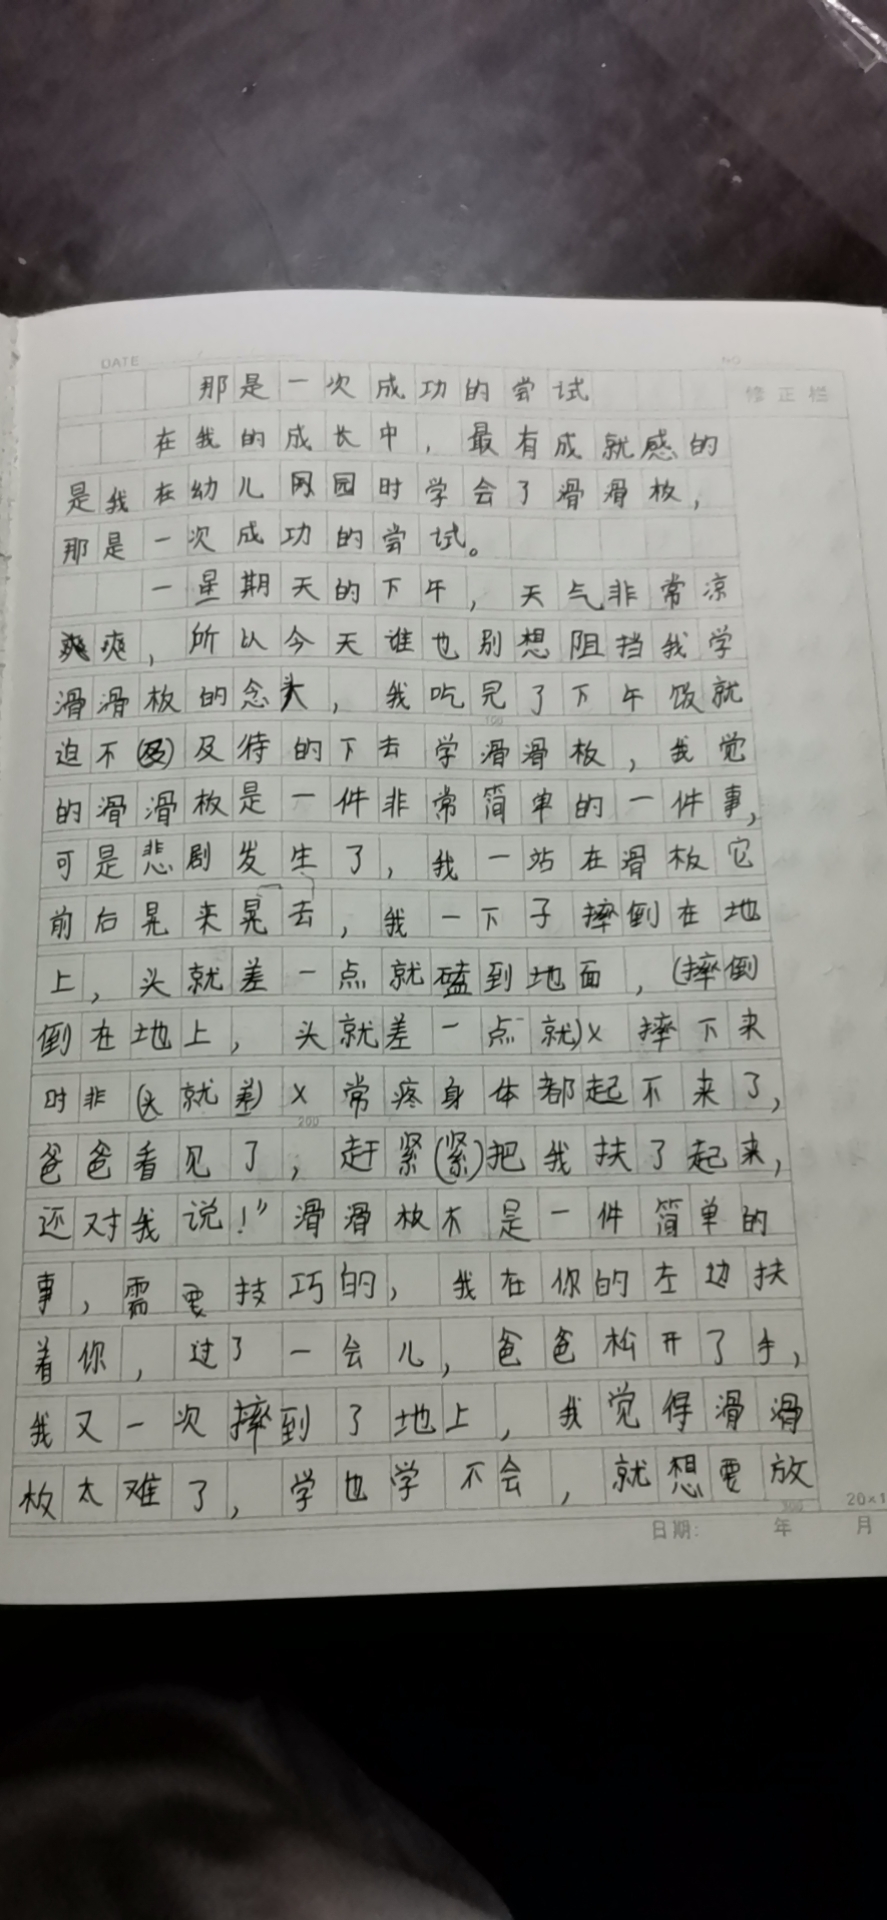 DATE
NO
那是一次成功的尝试
修正栏
在我的成长中，最有成就感的
是我在幼儿园时学会了滑滑板，
那是一次成功的尝试。
一星期天的下午，天气非常凉
爽，所以今天谁也别想阻挡我学
滑滑板的念头，我吃完了下午饭就
迫不(及)及待的下去学滑滑板，我觉
的滑滑板是一件非常简单的一件事，
100
可是悲剧发生了，我一站在滑板它
前后晃来晃去，我一下子摔倒在地
上，头就差一点就磕到地面，(摔倒
倒在地上，头就差一点就)x摔下来
时非(头就差)x常疼身体都起不来了，
200
爸爸看见了，赶紧(紧)把我扶了起来，
还对我说！”滑滑板不是一件简单的
事，需要技巧的，我在你的左边扶
着你，过了一会儿，爸爸松开了手，
我又一次摔到了地上，我觉得滑滑
板太难了，学也学不会，就想要放
300
20×1
日期： 年 月